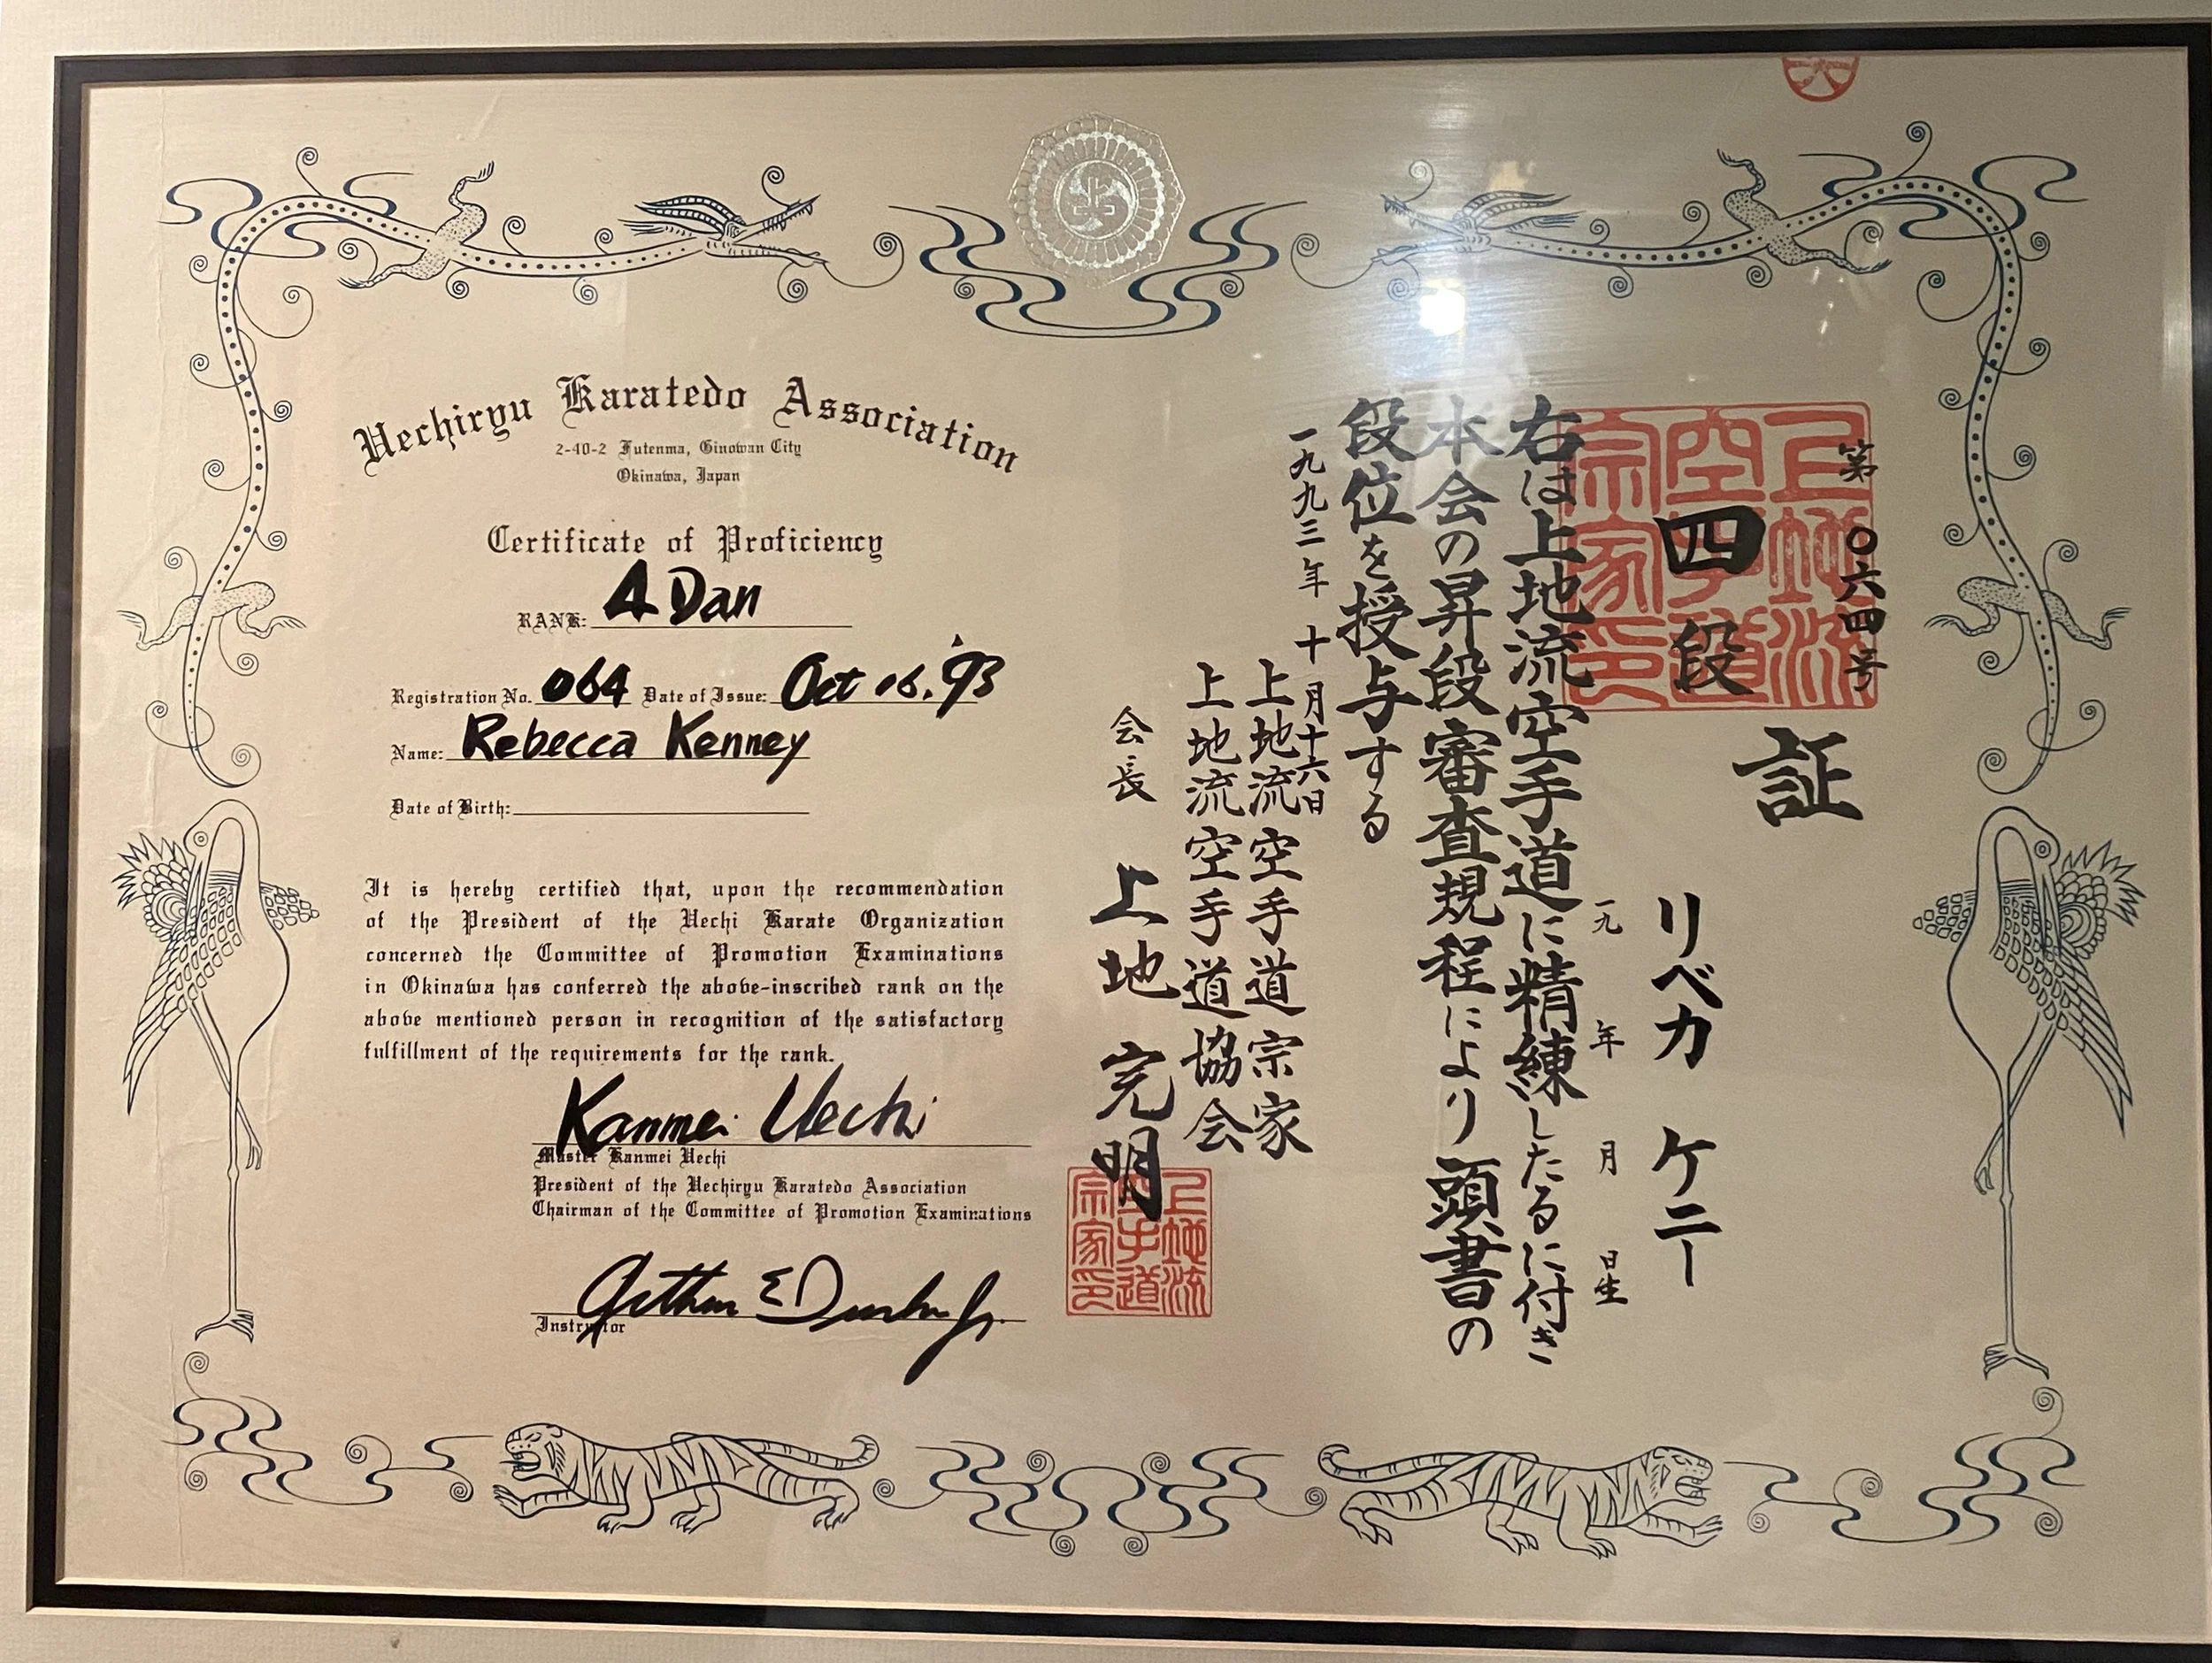 Uechiryu Karatedo Association
2-40-2 Futenma, Ginowan City
Okinawa, Japan
Certificate of Proficiency
RANK: 4 Dan
Registration No. 064 Date of Issue: Oct 16. '93
Name: Rebecca Kenney
Date of Birth:
It is hereby certified that, upon the recommendation
of the President of the Uechi Karate Organization
concerned the Committee of Promotion Examinations
in Okinawa has conferred the above-inscribed rank on the
above mentioned person in recognition of the satisfactory
fulfillment of the requirements for the rank.
Kanmei Uechi
Master Kanmei Uechi
President of the Uechiryu Karatedo Association
Chairman of the Committee of Promotion Examinations
Arthur E
Instructor
第〇六四号
四段
証
リベカ ケニー
一九 年 月 日生
右は上地流空手道に精練したるに付き
本会の昇段審査規程により頭書の
段位を授与する
一九九三年 十月十六日
上地流空手道宗家
上地流空手道協会
会長 上地完明
上地流
空手道
宗家印
上地流
空手道
宗家印